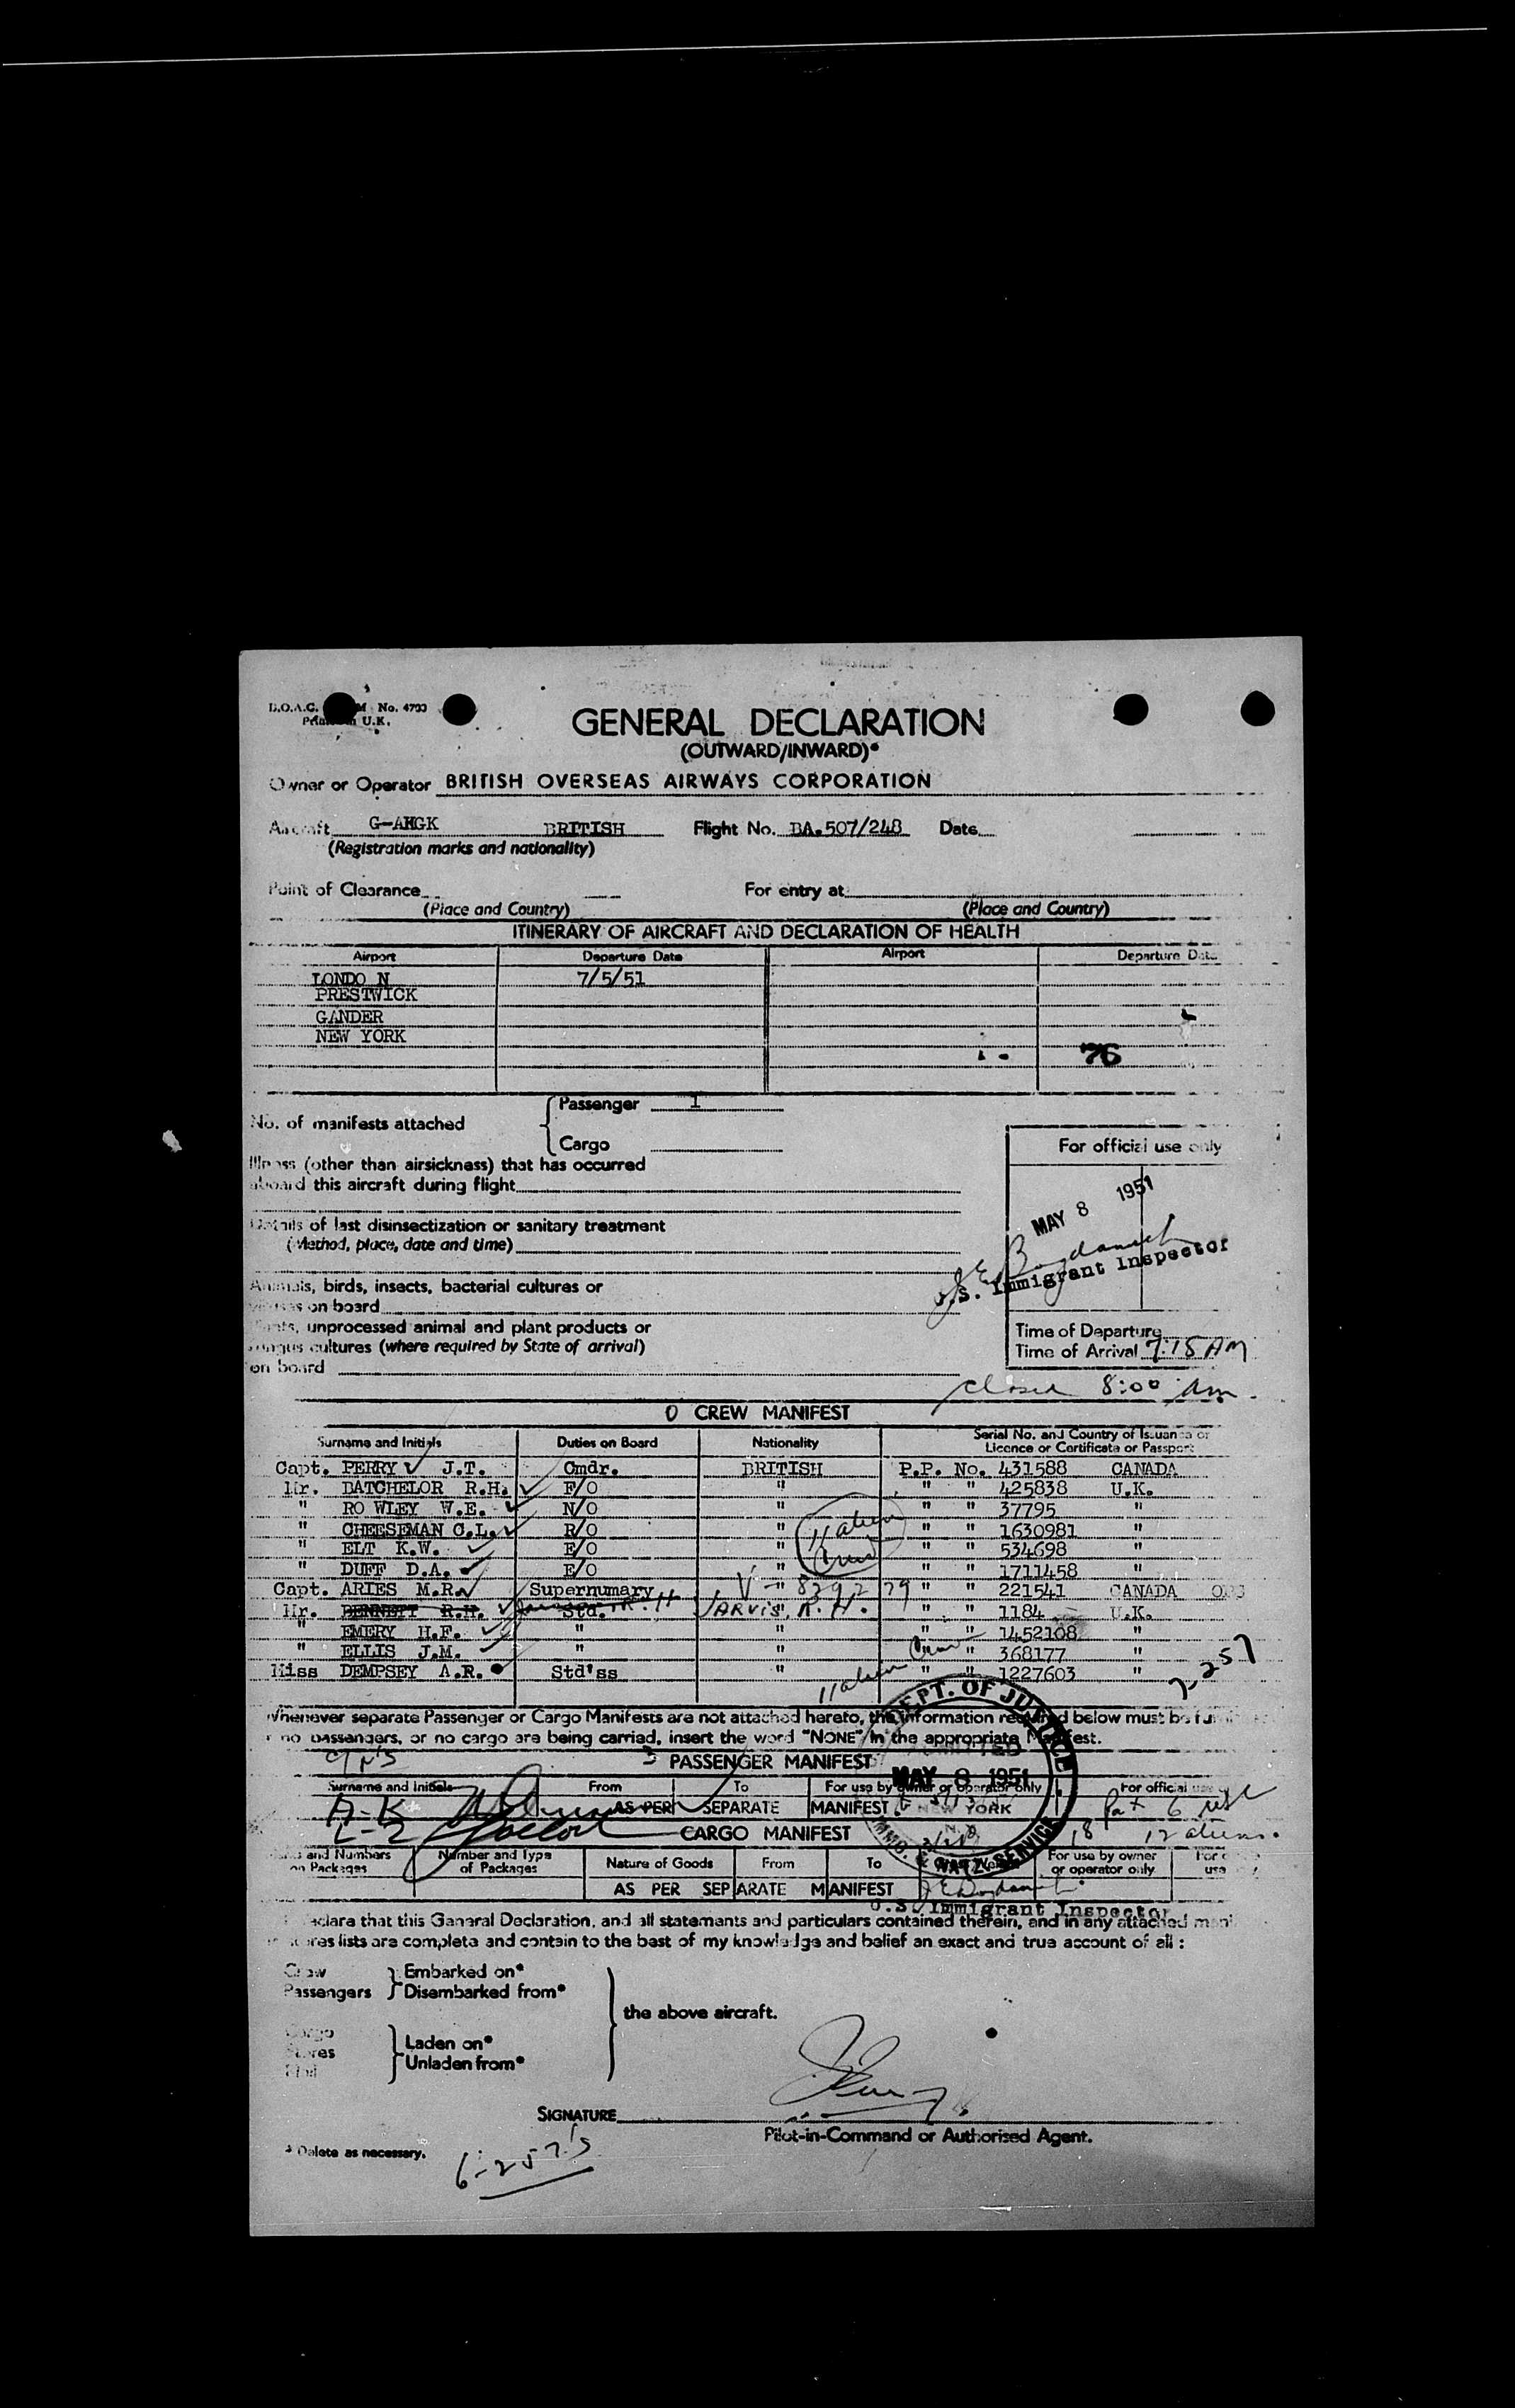 No. 4700
U.K.
GENERAL DECLARATION
(OUTWARD/INWARD)*
Owner or Operator BRITISH OVERSEAS AIRWAYS CORPORATION
Aircraft G-AHGK BRITISH Flight No. BA.507/248 Date
(Registration marks and nationality)
Point of Clearance For entry at
(Place and Country) (Place and Country)
ITINERARY OF AIRCRAFT AND DECLARATION OF HEALTH
Airport Departure Date Airport Departure Date
LONDO N 7/5/51
PRESTWICK
GANDER
NEW YORK
76
Passenger 1
No. of manifests attached
Cargo
For official use only
Illness (other than airsickness) that has occurred
aboard this aircraft during flight
MAY 8 1951
Details of last disinsectization or sanitary treatment
(Method, place, date and time)
U.S. Immigrant Inspector
Animals, birds, insects, bacterial cultures or
viruses on board
Plants, unprocessed animal and plant products or
fungus cultures (where required by State of arrival)
on board
Time of Departure
Time of Arrival 7:15 AM
closed 8:00 am.
CREW MANIFEST
Surname and Initials Duties on Board Nationality Serial No. and Country of Issuance of
Licence or Certificate or Passport
Capt. PERRY J.T. Cmdr. BRITISH P.P. No. 431588 CANADA
Mr. BATCHELOR R.H. F/O " " " 425838 U.K.
" RO WLEY W.E. N/O " " " 37795 "
" CHEESEMAN C.L. R/O " " " 1630981 "
" ELT K.W. E/O " " " 534698 "
" DUFF D.A. E/O " " " 1711458 "
11 alien
Crew
Capt. ARIES M.R. Supernumary " " " 221541 CANADA
V-839279
Mr. BENNETT R.H. Std. JARVIS, R.H. " " " 1184 U.K.
" EMERY H.F. " " " " 1452108 "
" ELLIS J.M. " " " 368177 "
Miss DEMPSEY A.R. Std'ss " " " 1227603 "
11 alien Crew
7-257
Whenever separate Passenger or Cargo Manifests are not attached hereto, the information required below must be
no passengers, or no cargo are being carried, insert the word "NONE" in the appropriate Manifest.
DEPT. OF JUSTICE
ADMITTED
MAY 8 1951
NEW YORK
IMMG. & NATZ. SERVICE
PASSENGER MANIFEST
Surname and Initials From To For use by owner or operator only For official use
A-K AS PER SEPARATE MANIFEST Pax 6 USC
L-Z CARGO MANIFEST 18 12 aliens.
and Numbers on Packages Number and Type of Packages Nature of Goods From To For use by owner or operator only
AS PER SEPARATE MANIFEST
U.S. Immigrant Inspector
declare that this General Declaration, and all statements and particulars contained therein, and in any attached
lists are complete and contain to the best of my knowledge and belief an exact and true account of all :
Crew Embarked on*
Passengers Disembarked from*
the above aircraft.
Cargo
Stores Laden on*
Mail Unladen from*
SIGNATURE
Pilot-in-Command or Authorised Agent.
* Delete as necessary.
6-257's